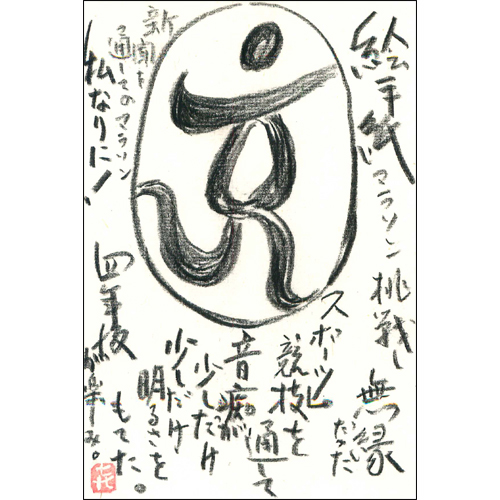 絵手紙マラソン挑戦し
無縁
だった
スポーツ
競技を
通して
音痴が
少しだけ
少しだけ
明るさを
もてた。
新聞を
通してのマラソン
私なりに!
四年後
が楽しみ。